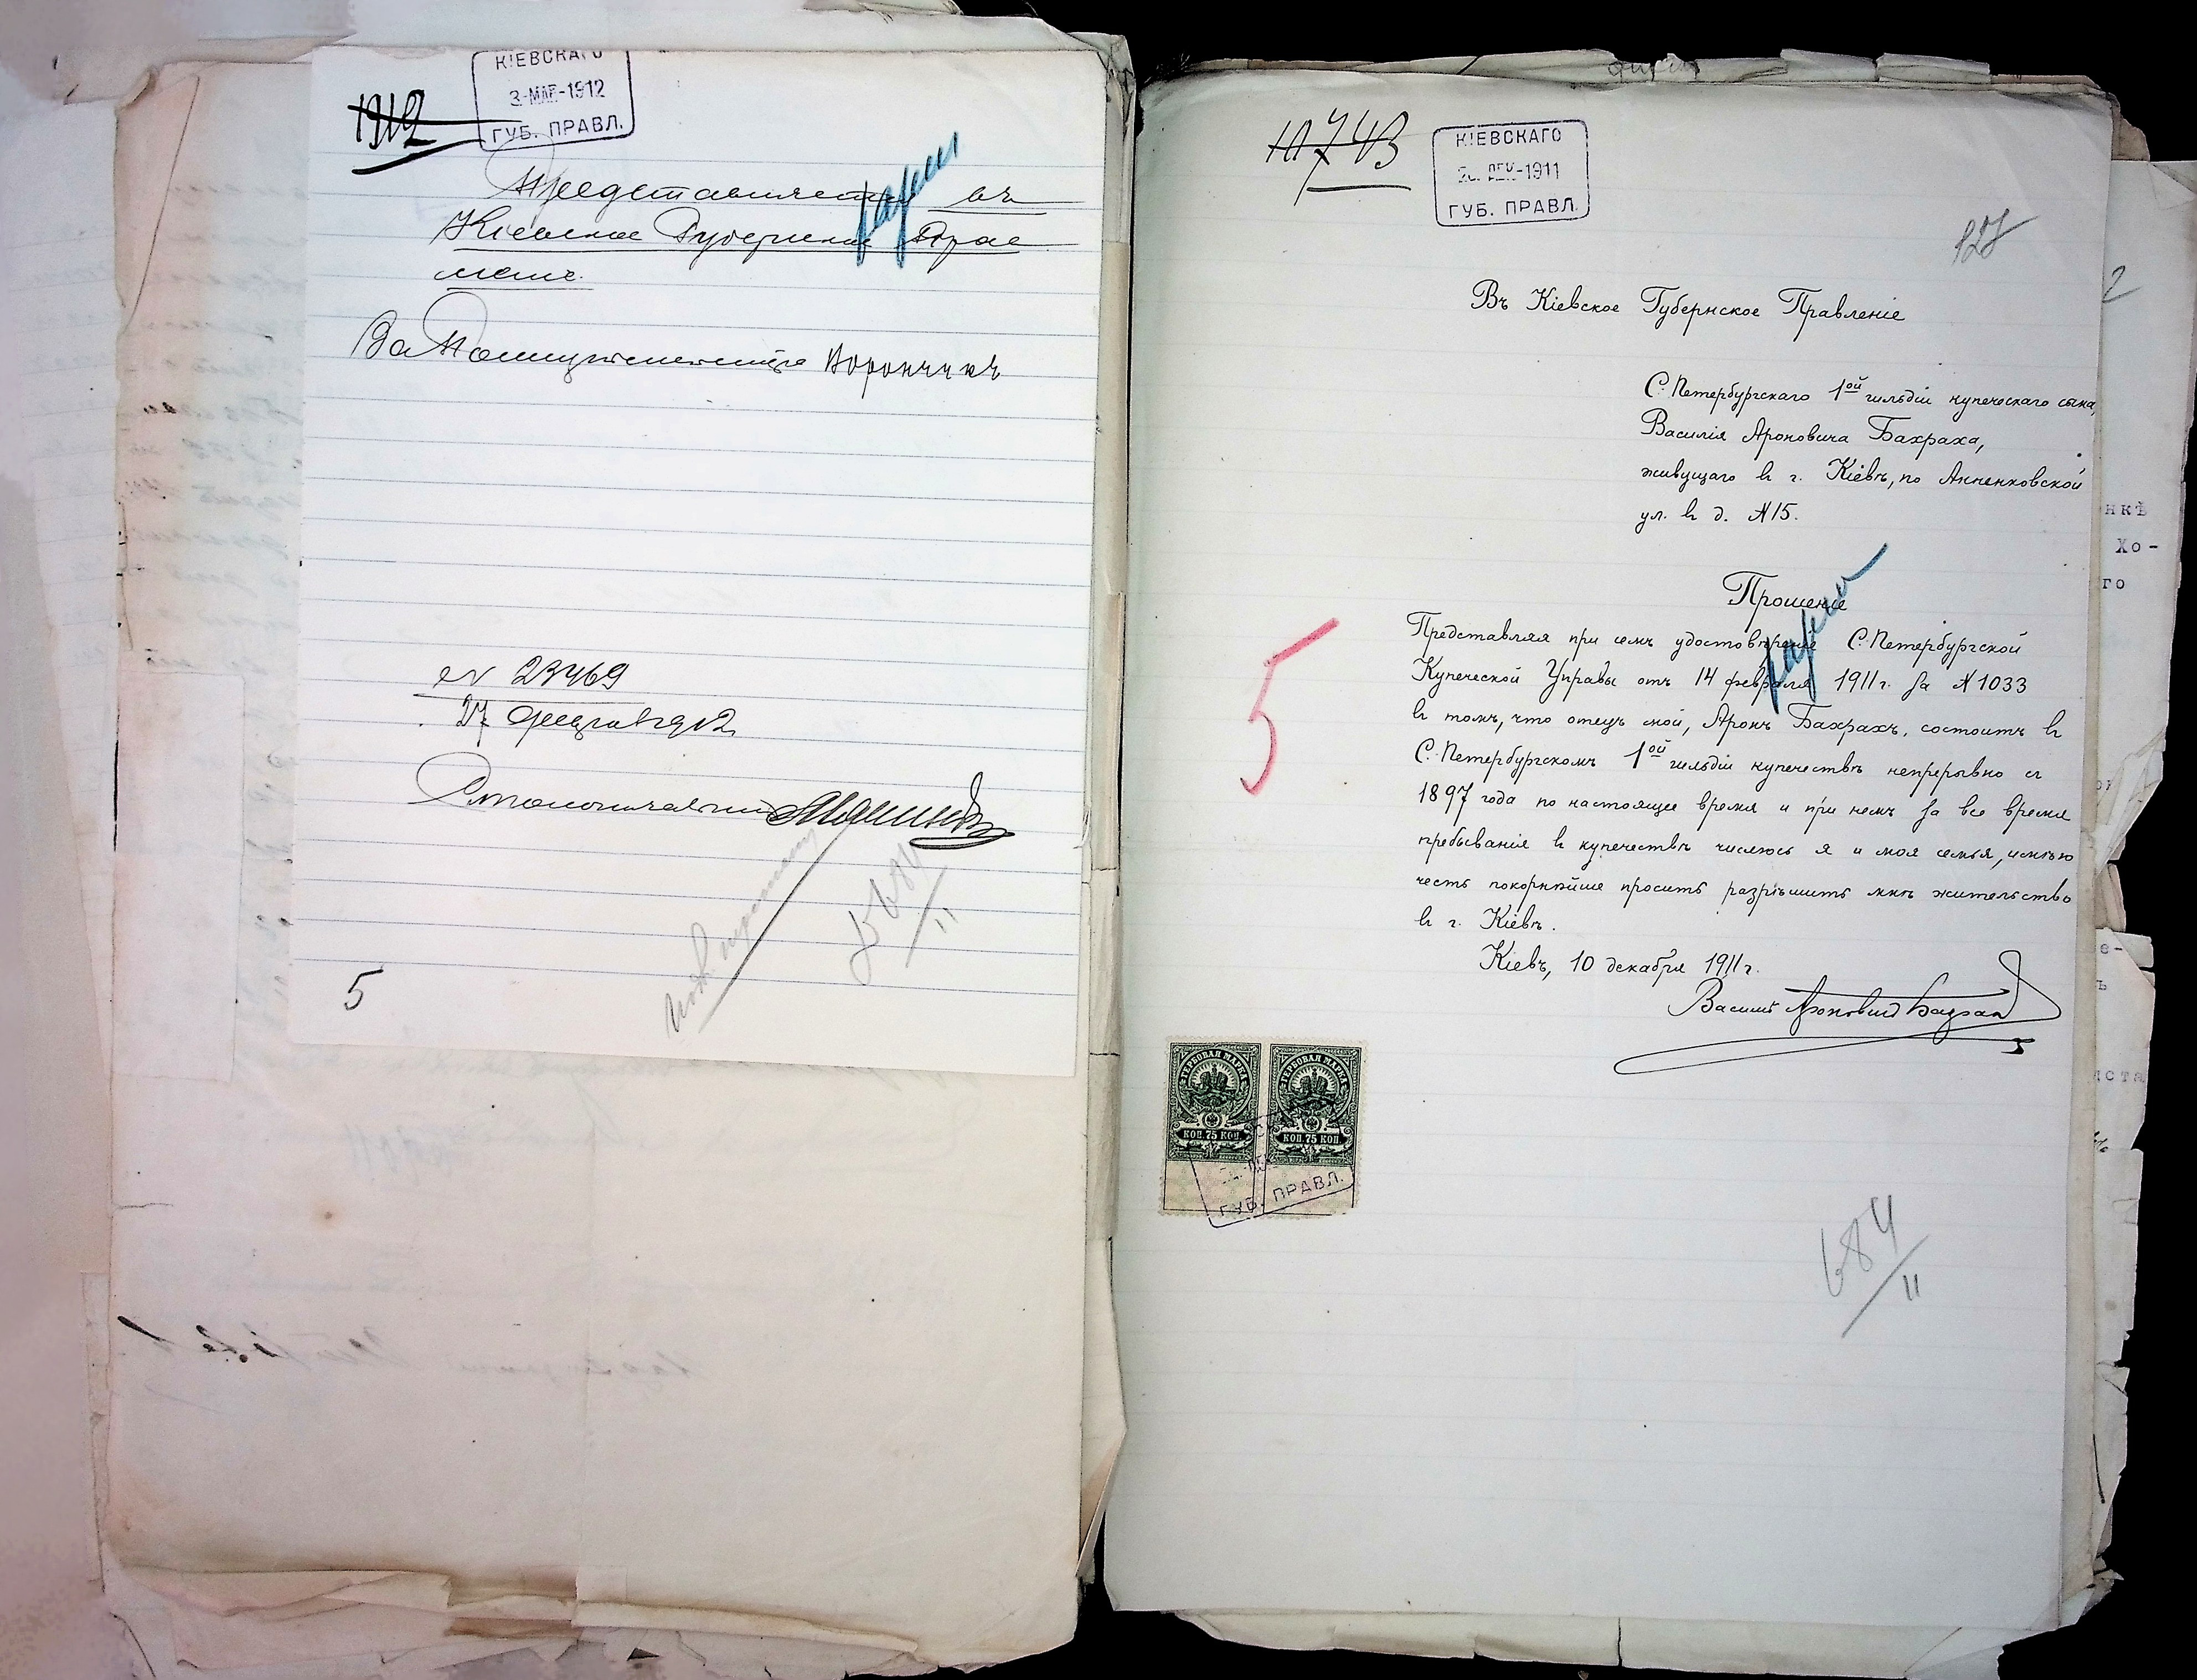 1912
КІЕВСКАГО
3-МАР-1912
ГУБ. ПРАВЛ.
Представляется въ
Кіевское Губернское Прав
леніе.
За Полицеймейстера
№ 23469
27 февраля 1912
Столоначальникъ
684
11
5
10743
КІЕВСКАГО
ДЕК-1911
ГУБ. ПРАВЛ.
127
2
Въ Кіевское Губернское Правленіе
С.Петербургскаго 1ой гильдіи купеческаго сына,
Василія Ароновича Бахраха,
живущаго въ г. Кіевѣ, по Анненковской
ул. въ д. №15.
Прошеніе
Представляя при семъ удостовѣреніе С.Петербургской
Купеческой Управы отъ 14 февраля 1911 г. за №1033
въ томъ, что отецъ мой, Аронъ Бахрахъ, состоитъ въ
С.-Петербургскомъ 1ой гильдіи купечествѣ непрерывно съ
1897 года по настоящее время и при немъ за все время
пребыванія въ купечествѣ числюсь я и моя семья, имѣю
честь покорнѣйше просить разрѣшить мнѣ жительство
въ г. Кіевѣ.
Кіевъ, 10 декабря 1911 г.
Василій Ароновичъ Бахрах
5
ГЕРБОВАЯ МАРКА
КОП. 75 КОП.
ГЕРБОВАЯ МАРКА
КОП. 75 КОП.
ГУБ. ПРАВЛ.
684
11
нкѣ
Хо-
го